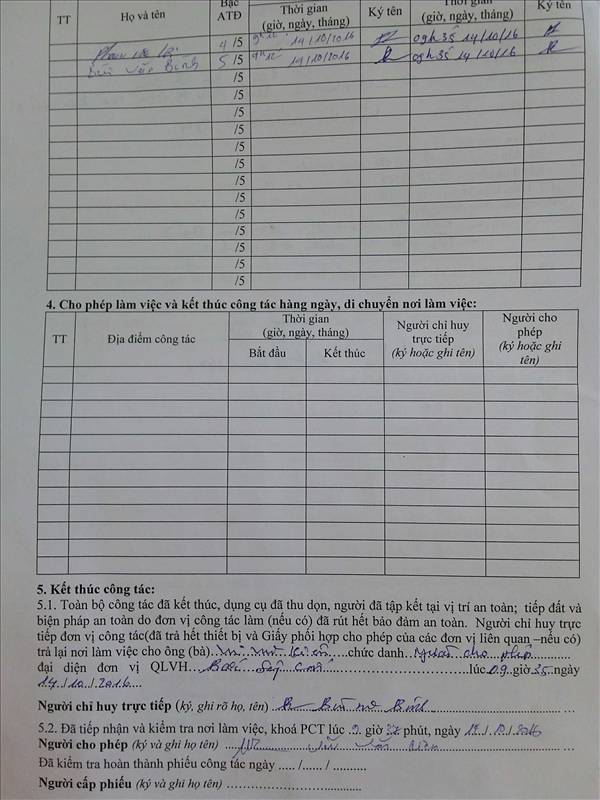 TT Họ và tên Bậc ATĐ Thời gian (giờ, ngày, tháng) Ký tên Thời gian (giờ, ngày, tháng) Ký tên
4/5 14/10/2016 09h35 14/10/16
Bùi Văn Bính 5/5 14/10/2016 09h35 14/10/16
/5
/5
/5
/5
/5
/5
/5
/5
/5
/5
/5
/5
/5
4. Cho phép làm việc và kết thúc công tác hàng ngày, di chuyển nơi làm việc:
TT Địa điểm công tác Thời gian (giờ, ngày, tháng) Người chỉ huy trực tiếp (ký hoặc ghi tên) Người cho phép (ký hoặc ghi tên)
Bắt đầu Kết thúc
5. Kết thúc công tác:
5.1. Toàn bộ công tác đã kết thúc, dụng cụ đã thu dọn, người đã tập kết tại vị trí an toàn; tiếp đất và
biện pháp an toàn do đơn vị công tác làm (nếu có) đã rút hết bảo đảm an toàn. Người chỉ huy trực
tiếp đơn vị công tác(đã trả hết thiết bị và Giấy phối hợp cho phép của các đơn vị liên quan –nếu có)
trả lại nơi làm việc cho ông (bà) chức danh Người cho phép
đại diện đơn vị QLVH lúc 09 giờ 35 ngày
14/10/2016
Người chỉ huy trực tiếp (ký, ghi rõ họ, tên)
5.2. Đã tiếp nhận và kiểm tra nơi làm việc, khoá PCT lúc 9 giờ phút, ngày
Người cho phép (ký và ghi họ tên)
Đã kiểm tra hoàn thành phiếu công tác ngày ..... /...... / ..........
Người cấp phiếu (ký và ghi họ tên) ................................